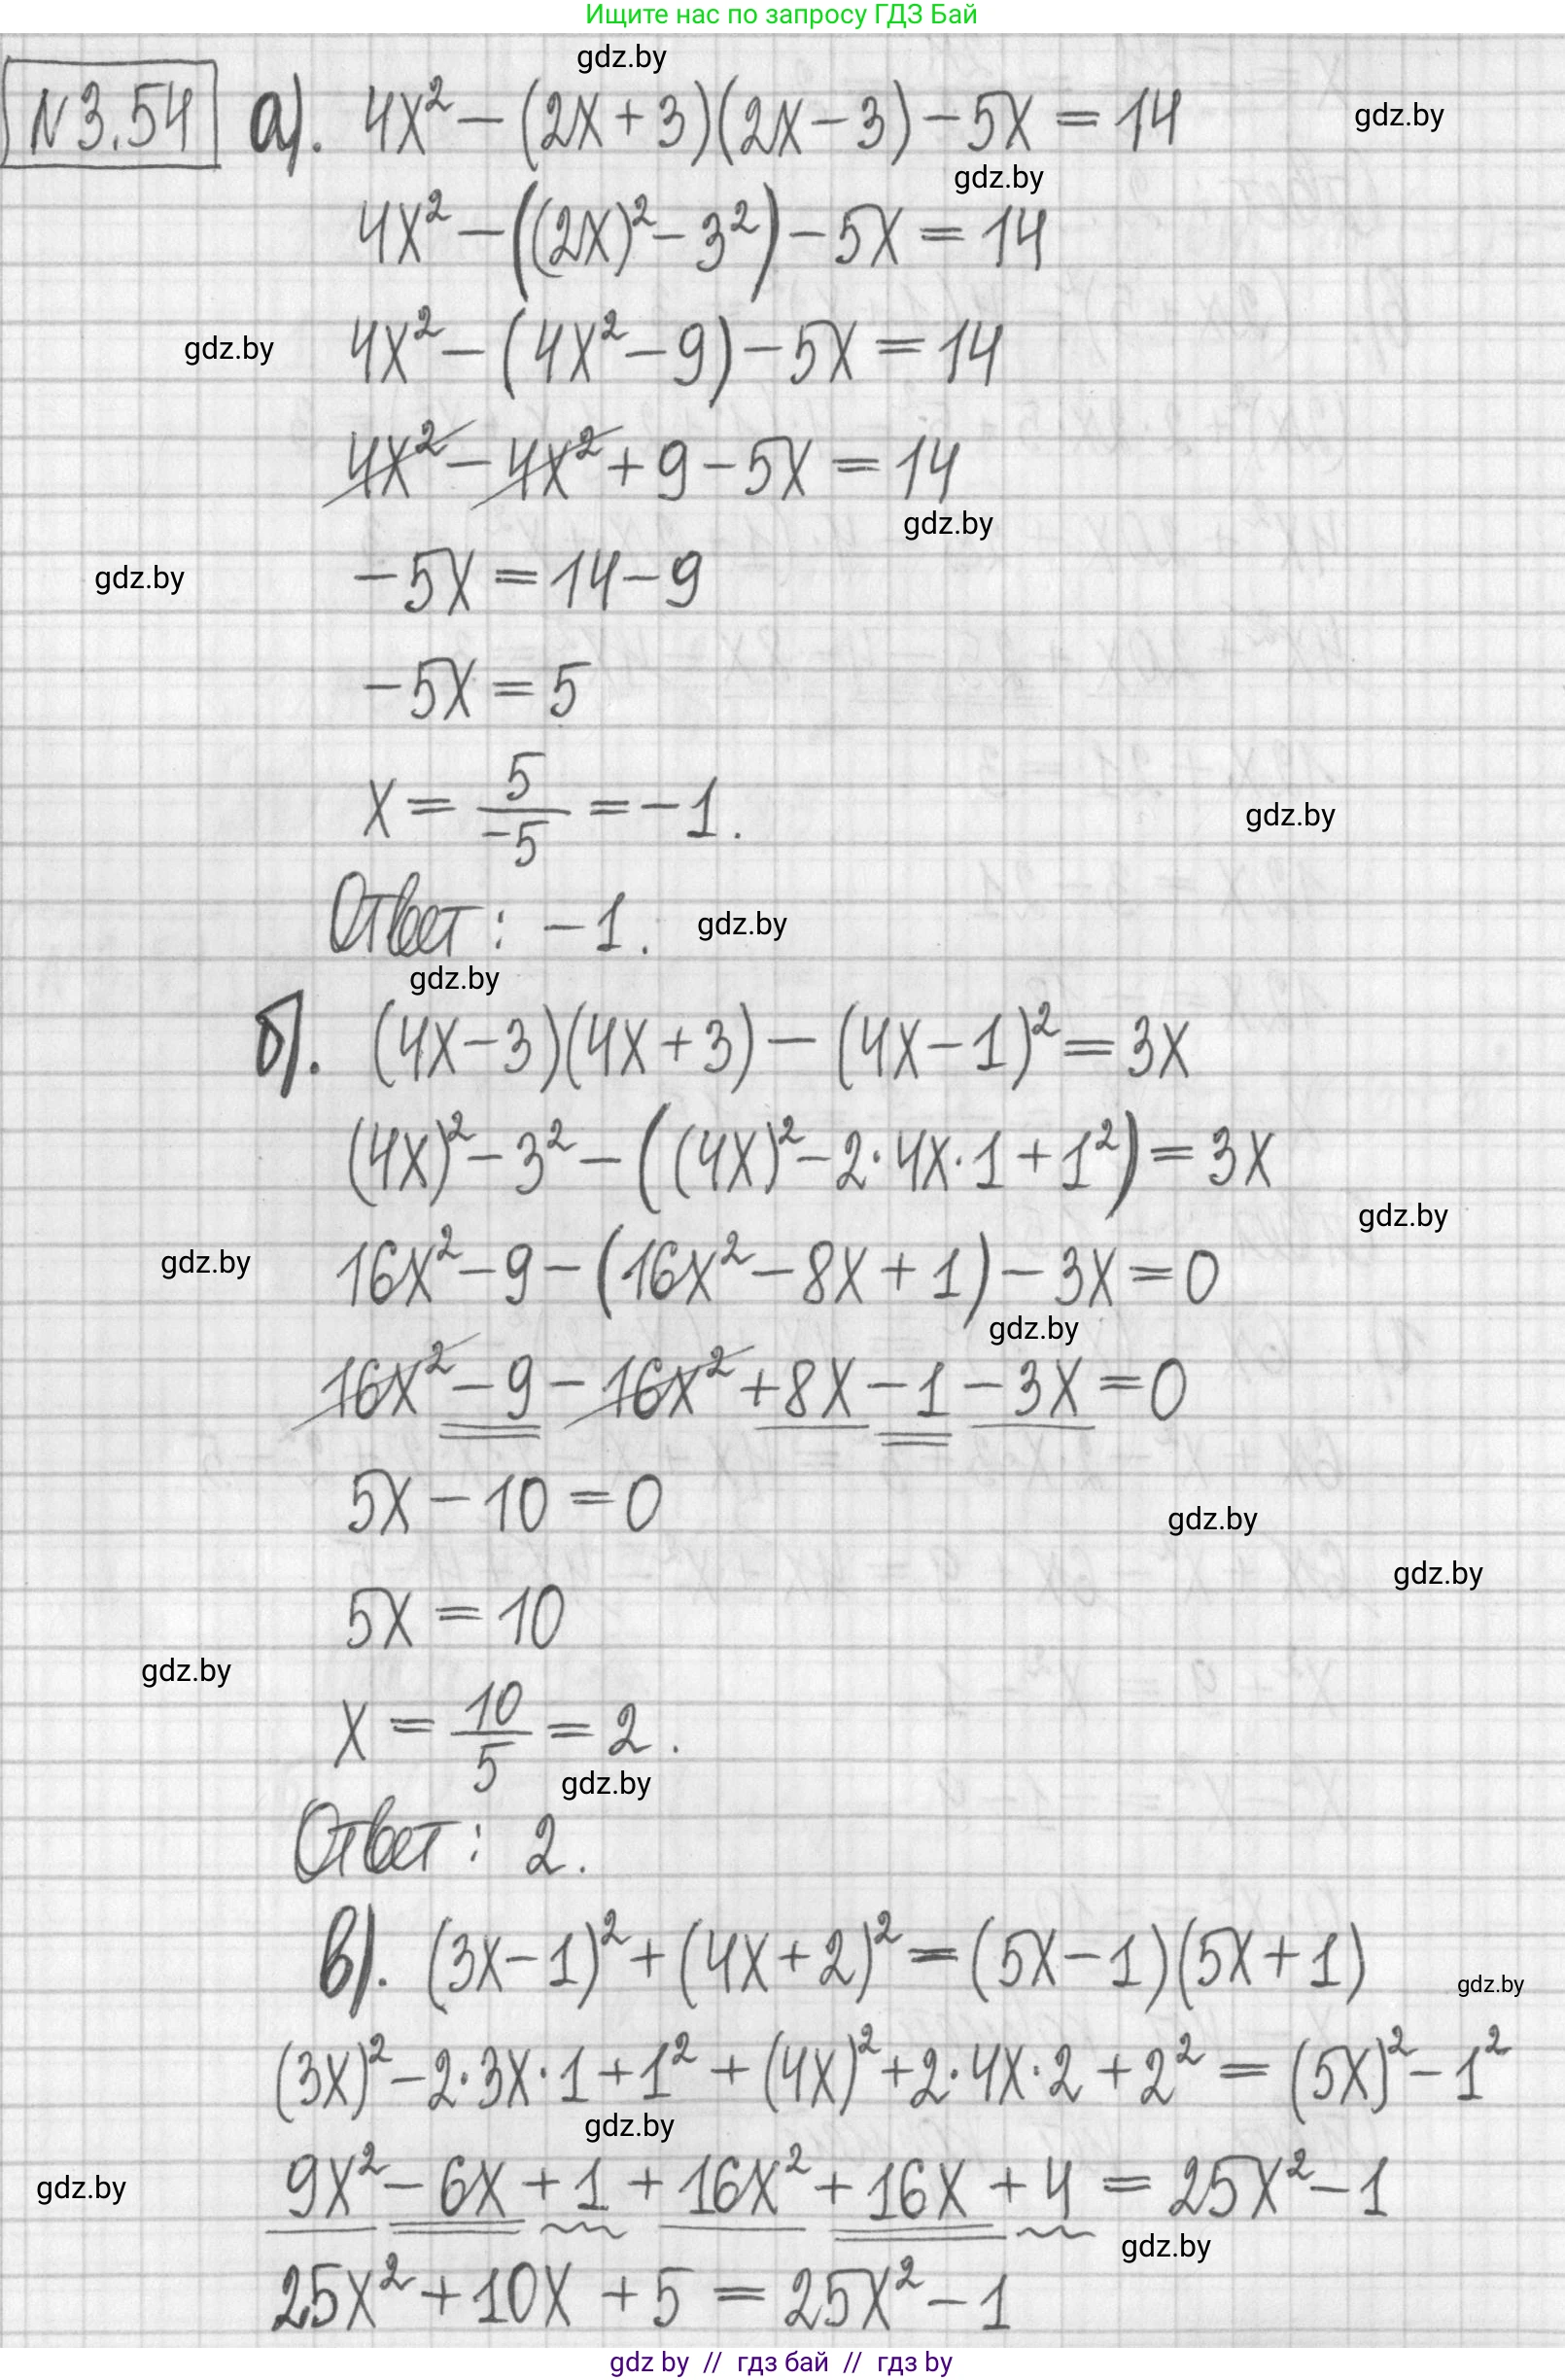 Ищите нас по запросу ГДЗ Бай
gdz.by
№3.54 а). 4x² − (2x + 3)(2x − 3) − 5x = 14
gdz.by
gdz.by
4x² − ((2x)² − 3²) − 5x = 14
gdz.by
4x² − (4x² − 9) − 5x = 14
4x² − 4x² + 9 − 5x = 14
gdz.by
gdz.by
−5x = 14 − 9
−5x = 5
x = 5/−5 = −1.
gdz.by
Ответ: −1.
gdz.by
gdz.by
б). (4x − 3)(4x + 3) − (4x − 1)² = 3x
(4x)² − 3² − ((4x)² − 2·4x·1 + 1²) = 3x
gdz.by
gdz.by
16x² − 9 − (16x² − 8x + 1) − 3x = 0
gdz.by
16x² − 9 − 16x² + 8x − 1 − 3x = 0
5x − 10 = 0
gdz.by
gdz.by
5x = 10
gdz.by
x = 10/5 = 2.
gdz.by
Ответ: 2.
в). (3x − 1)² + (4x + 2)² = (5x − 1)(5x + 1)
gdz.by
(3x)² − 2·3x·1 + 1² + (4x)² + 2·4x·2 + 2² = (5x)² − 1²
gdz.by
gdz.by
9x² − 6x + 1 + 16x² + 16x + 4 = 25x² − 1
gdz.by
25x² + 10x + 5 = 25x² − 1
gdz by // гдз бай // gdz by